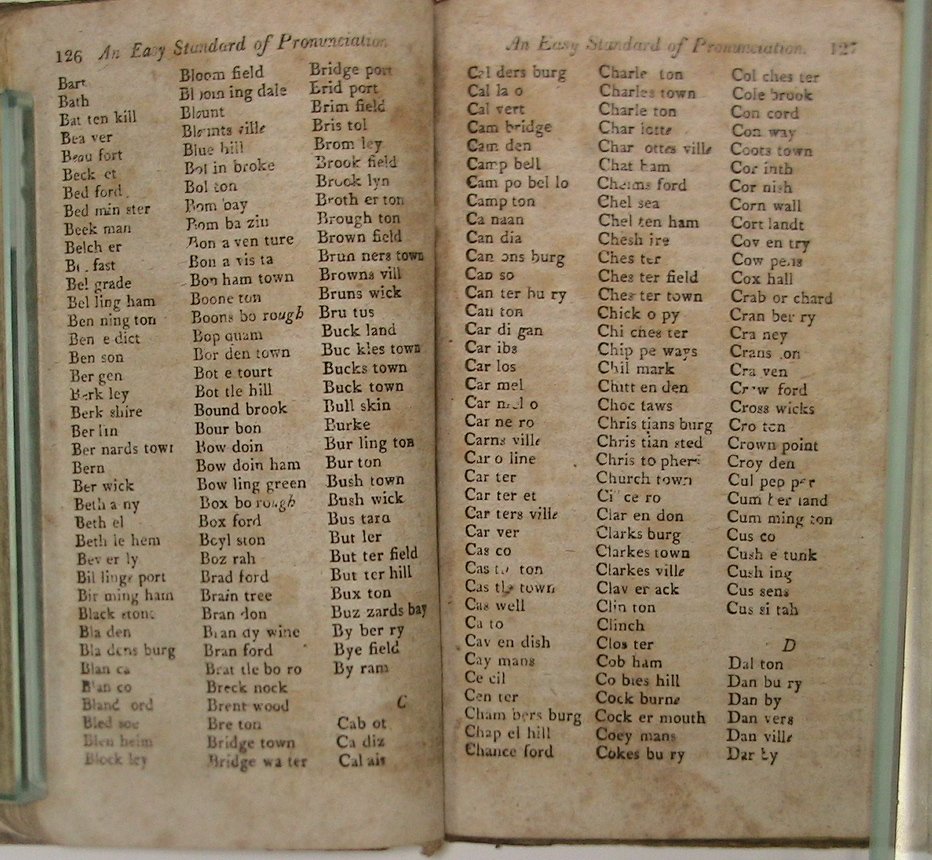 126 An Easy Standard of Pronunciation
Bart
Bath
Bat ten kill
Bea ver
Beau fort
Beck et
Bed ford
Bed min ster
Beek man
Belch er
fast
Bel grade
Bel ling ham
Ben ning ton
Ben e dict
Ben son
Ber gen
Berk ley
Berk shire
Ber lin
Ber nards town
Bern
Ber wick
Beth a ny
Beth el
Beth le hem
Bev er ly
Bil linge port
Bir ming ham
Black stone
Bla den
Bla dens burg
Blan ca
Blan co
Bland ord
Bled soe
Blen heim
Block ley
Bloom field
Bloom ing dale
Blount
Blounts ville
Blue hill
Bol in broke
Bol ton
Bom bay
Bom ba zin
Bon a ven ture
Bon a vis ta
Bon ham town
Boone ton
Boons bo rough
Bop quam
Bor den town
Bot e tourt
Bot tle hill
Bound brook
Bour bon
Bow doin
Bow doin ham
Bow ling green
Box bo rough
Box ford
Boyl ston
Boz rah
Brad ford
Brain tree
Bran don
Bran dy wine
Bran ford
Brat tle bo ro
Breck nock
Brent wood
Bre ton
Bridge town
Bridge wa ter
Bridge port
Brid port
Brim field
Bris tol
Brom ley
Brook field
Brook lyn
Broth er ton
Brough ton
Brown field
Brun ners town
Browns vill
Bruns wick
Bru tus
Buck land
Buc kles town
Bucks town
Buck town
Bull skin
Burke
Bur ling ton
Bur ton
Bush town
Bush wick
Bus tard
But ler
But ter field
But ter hill
Bux ton
Buz zards bay
By ber ry
Bye field
By ram
C
Cab ot
Ca diz
Cal ais
An Easy Standard of Pronunciation. 127
Cal ders burg
Cal la o
Cal vert
Cam bridge
Cam den
Camp bell
Cam po bel lo
Camp ton
Ca naan
Can dia
Can ons burg
Can so
Can ter bu ry
Can ton
Car di gan
Car ibs
Car los
Car mel
Car mel o
Car ne ro
Carns ville
Car o line
Car ter
Car ter et
Car ters ville
Car ver
Cas co
Cas tle ton
Cas tle town
Cas well
Ca to
Cav en dish
Cay mans
Ce cil
Cen ter
Cham bers burg
Chap el hill
Chance ford
Charle ton
Charles town
Charle ton
Char lotte
Char ottes ville
Chat ham
Chelms ford
Chel sea
Chel ten ham
Chesh ire
Ches ter
Ches ter field
Ches ter town
Chick o py
Chi ches ter
Chip pe ways
Chil mark
Chitt en den
Choc taws
Chris tians burg
Chris tian sted
Chris to phers
Church town
Ci ce ro
Clar en don
Clarks burg
Clarkes town
Clarkes ville
Clav er ack
Clin ton
Clinch
Clos ter
Cob ham
Co bles hill
Cock burne
Cock er mouth
Coey mans
Cokes bu ry
Col ches ter
Cole brook
Con cord
Con way
Coots town
Cor inth
Cor nish
Corn wall
Cort landt
Cov en try
Cow pens
Cox hall
Crab or chard
Cran ber ry
Cra ney
Crans on
Cra ven
Craw ford
Cross wicks
Cro ton
Crown point
Croy den
Cul pep per
Cum ber land
Cum ming ton
Cus co
Cush e tunk
Cush ing
Cus sens
Cus si tah
D
Dal ton
Dan bu ry
Dan by
Dan vers
Dan ville
Dar by